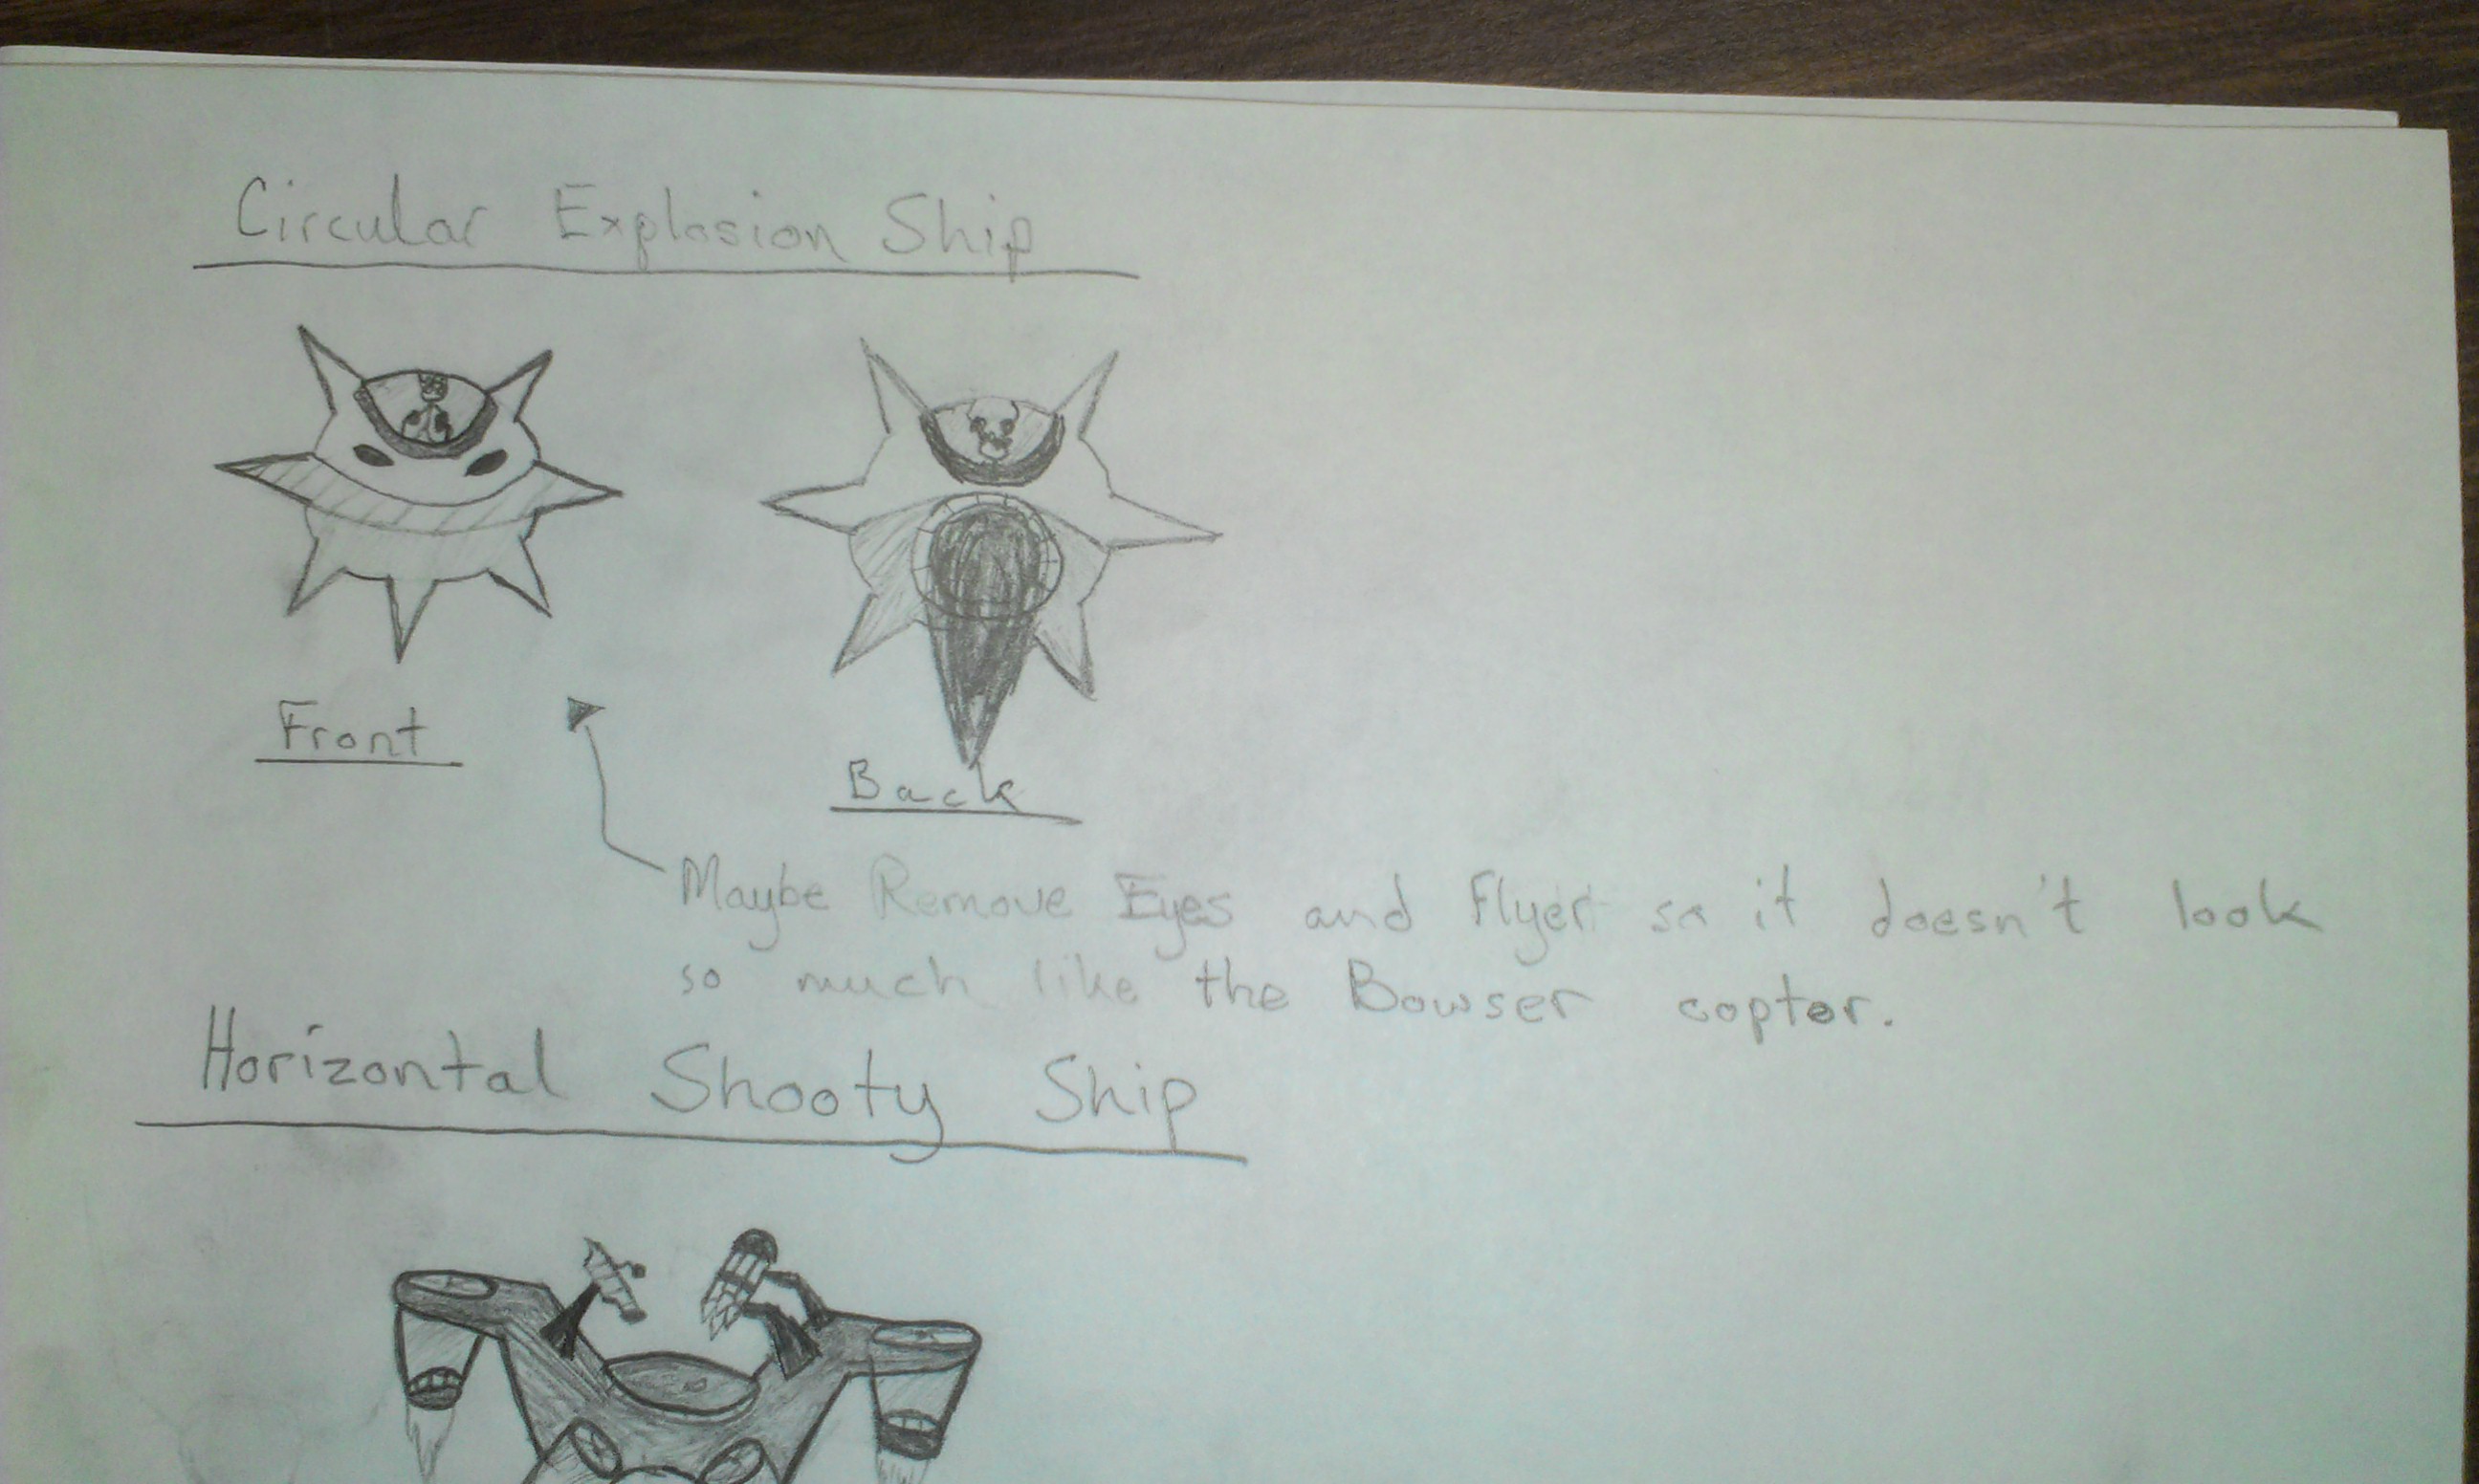 Circular Explosion Ship
Front
Back
Maybe Remove Eyes and Flyer so it doesn't look
so much like the Bowser copter.
Horizontal Shooty Ship